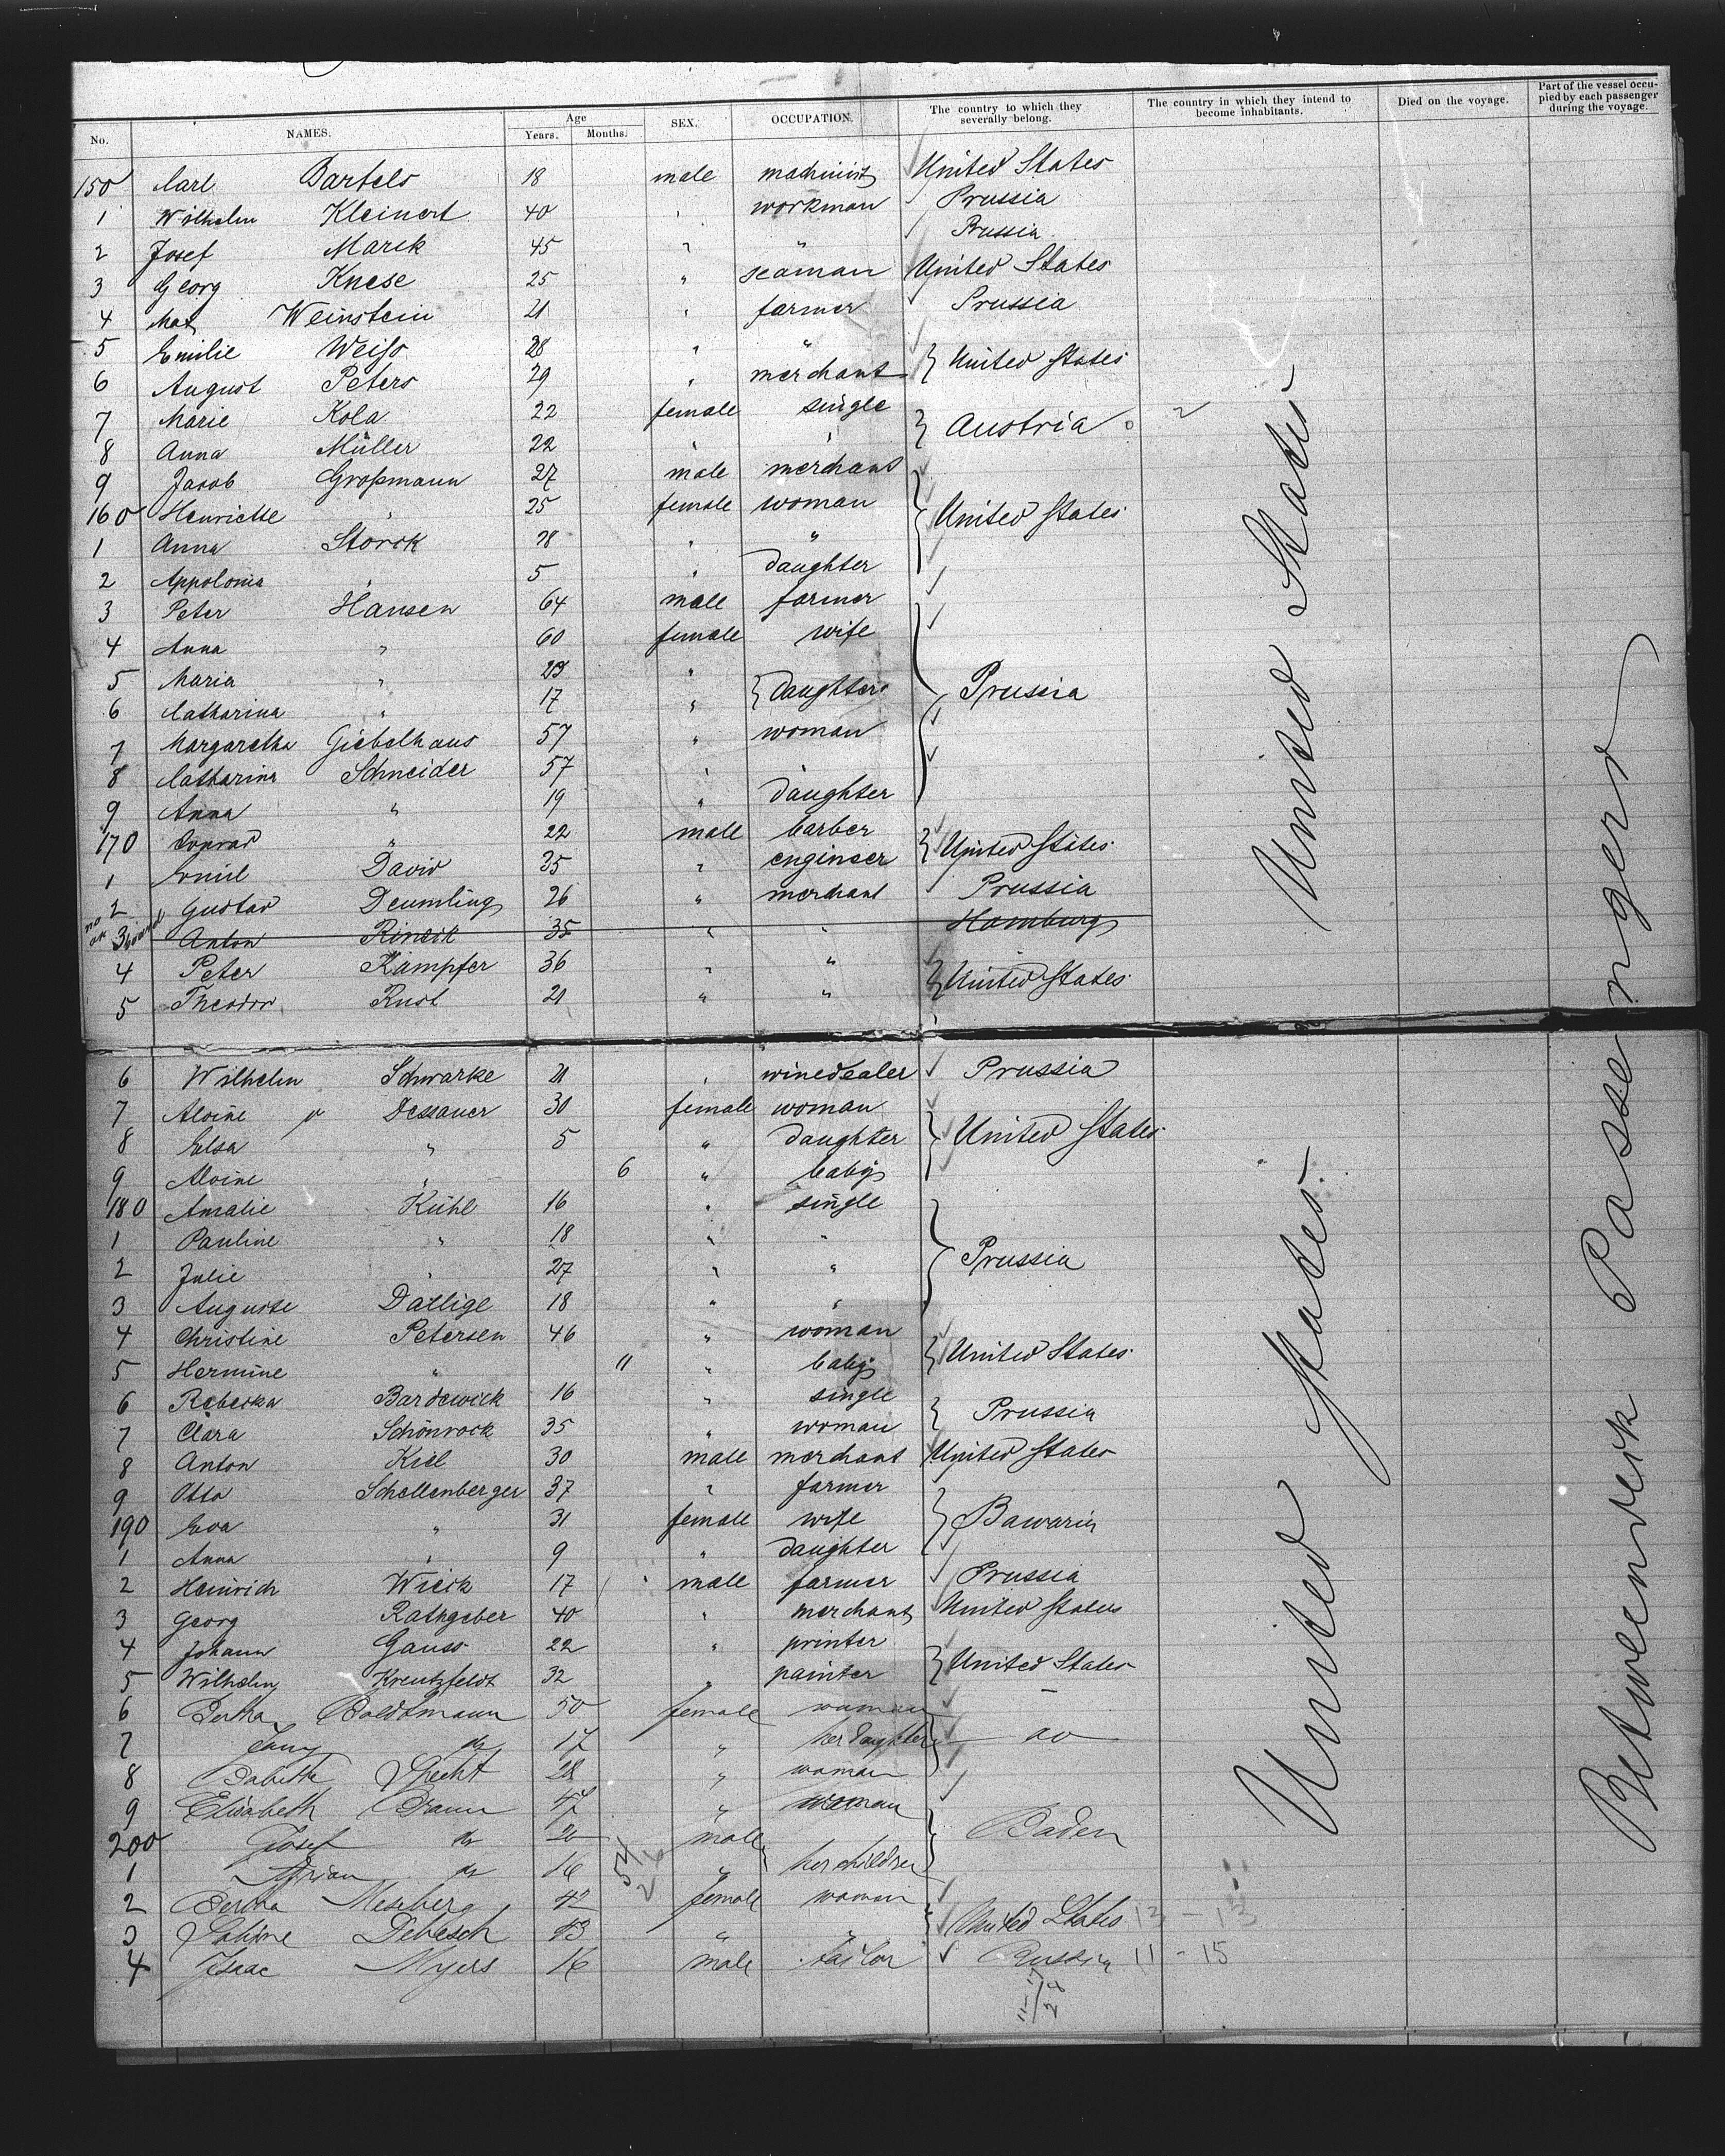 No. NAMES. Age Years. Months. SEX. OCCUPATION. The country to which they severally belong. The country in which they intend to become inhabitants. Died on the voyage. Part of the vessel occupied by each passenger during the voyage.
150 Carl Bartels 18 male machinist United States
1 Wilhelm Kleinert 40 " workman Prussia
2 Josef Marek 45 " " Prussia
3 Georg Knese 25 " seaman United States
4 Max Weinstein 21 " farmer Prussia
5 Emilie Weiss 28 " " United States
6 August Peters 29 " merchant
7 Marie Kola 22 female single Austria
8 Anna Müller 22 " "
9 Jacob Großmann 27 male merchant
160 Henriette " 25 female woman United States
1 Anna Storck 28 " "
2 Appolonia " 5 " daughter
3 Peter Hansen 64 male farmer
4 Anna " 60 female wife
5 Maria " 23 "
6 Catharina " 17 " daughters Prussia
7 Margaretha Giebelhaus 57 " woman
8 Catharina Schneider 57 " "
9 Anna " 19 " daughter
170 Conrad " 22 male barber United States
1 Emil David 25 " engineer
2 Gustav Deumling 26 " merchant Prussia
3 Anton 35 " " Hamburg
4 Peter Kämpfer 36 " " United States
5 Theodor Rust 21 " "
6 Wilhelm Schwarke 21 " winedealer Prussia
7 Alvine Dessauer 30 female woman
8 Elsa " 5 " daughter United States
9 Alvine " 6 " baby
180 Amalie Kühl 16 " single
1 Pauline " 18 " "
2 Julie " 27 " " Prussia
3 Auguste Dallige 18 " "
4 Christine Petersen 46 " woman United States
5 Hermine " 11 " baby
6 Rebecka Bardewick 16 " single Prussia
7 Clara Schönrock 35 " woman
8 Anton Kiel 30 male merchant United States
9 Otto Schellenberger 37 " farmer
190 Eva " 31 female wife Bawaria
1 Anna " 9 " daughter
2 Heinrich Wieck 17 male farmer Prussia
3 Georg Rathgeber 40 " merchant United States
4 Johann Gauss 22 " printer United States
5 Wilhelm Kreutzfeldt 32 " painter
6 Bertha Boldtmann 50 female woman
7 Fany do 17 " her daughter do
8 Babette Specht 28 " woman
9 Elisabeth Braun 47 " woman
200 Josef do 20 male Baden
1 Adrian do 16 " her children
2 Bertha Meseberg 42 female woman
3 Sabine Debesch 43 " " United States
4 Isaac Myers 16 male tailor Russia 11 - 15
United States
United States
Betweenderk Passengers